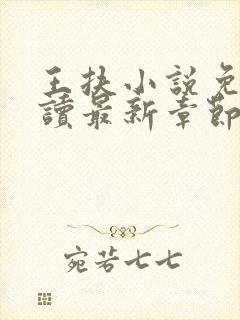 王扶小說免
讀最新章節
宛若七七